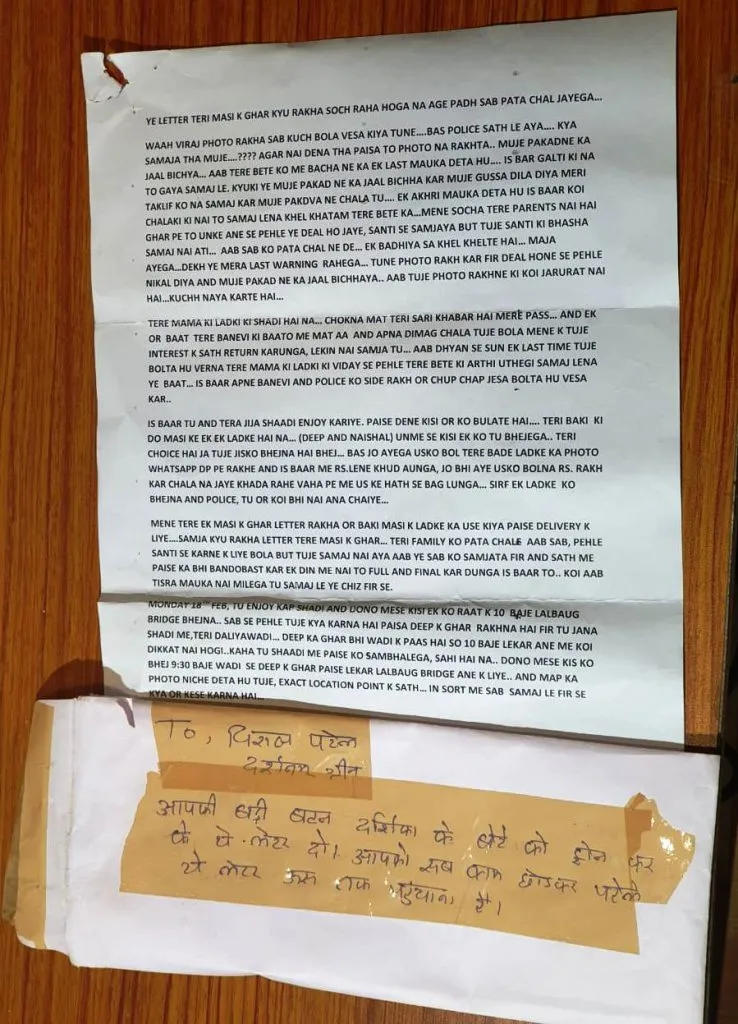 YE LETTER TERI MASI K GHAR KYU RAKHA SOCH RAHA HOGA NA AGE PADH SAB PATA CHAL JAYEGA...
WAAH VIRAJ PHOTO RAKHA SAB KUCH BOLA VESA KIYA TUNE....BAS POLICE SATH LE AYA.... KYA
SAMAJA THA MUJE....???? AGAR NAI DENA THA PAISA TO PHOTO NA RAKHTA.. MUJE PAKADNE KA
JAAL BICHYA... AAB TERE BETE KO ME BACHA NE KA EK LAST MAUKA DETA HU.... IS BAR GALTI KI NA
TO GAYA SAMAJ LE. KYUKI YE MUJE PAKAD NE KA JAAL BICHHA KAR MUJE GUSSA DILA DIYA MERI
TAKLIF KO NA SAMAJ KAR MUJE PAKDVA NE CHALA TU.... EK AKHRI MAUKA DETA HU IS BAAR KOI
CHALAKI KI NAI TO SAMAJ LENA KHEL KHATAM TERE BETE KA...MENE SOCHA TERE PARENTS NAI HAI
GHAR PE TO UNKE ANE SE PEHLE YE DEAL HO JAYE, SANTI SE SAMJAYA BUT TUJE SANTI KI BHASHA
SAMAJ NAI ATI... AAB SAB KO PATA CHAL NE DE... EK BADHIYA SA KHEL KHELTE HAI... MAJA
AYEGA...DEKH YE MERA LAST WARNING RAHEGA... TUNE PHOTO RAKH KAR FIR DEAL HONE SE PEHLE
NIKAL DIYA AND MUJE PAKAD NE KA JAAL BICHHAYA.. AAB TUJE PHOTO RAKHNE KI KOI JARURAT NAI
HAI...KUCHH NAYA KARTE HAI...
TERE MAMA KI LADKI KI SHADI HAI NA... CHOKNA MAT TERI SARI KHABAR HAI MERE PASS... AND EK
OR BAAT TERE BANEVI KI BAATO ME MAT AA AND APNA DIMAG CHALA TUJE BOLA MENE K TUJE
INTEREST K SATH RETURN KARUNGA, LEKIN NAI SAMJA TU... AAB DHYAN SE SUN EK LAST TIME TUJE
BOLTA HU VERNA TERE MAMA KI LADKI KI VIDAY SE PEHLE TERE BETE KI ARTHI UTHEGI SAMAJ LENA
YE BAAT... IS BAAR APNE BANEVI AND POLICE KO SIDE RAKH OR CHUP CHAP JESA BOLTA HU VESA
KAR..
IS BAAR TU AND TERA JIJA SHAADI ENJOY KARIYE. PAISE DENE KISI OR KO BULATE HAI.... TERI BAKI KI
DO MASI KE EK EK LADKE HAI NA... (DEEP AND NAISHAL) UNME SE KISI EK KO TU BHEJEGA.. TERI
CHOICE HAI JA TUJE JISKO BHEJNA HAI BHEJ... BAS JO AYEGA USKO BOL TERE BADE LADKE KA PHOTO
WHATSAPP DP PE RAKHE AND IS BAAR ME RS.LENE KHUD AUNGA, JO BHI AYE USKO BOLNA RS. RAKH
KAR CHALA NA JAYE KHADA RAHE VAHA PE ME US KE HATH SE BAG LUNGA... SIRF EK LADKE KO
BHEJNA AND POLICE, TU OR KOI BHI NAI ANA CHAIYE...
MENE TERE EK MASI K GHAR LETTER RAKHA OR BAKI MASI K LADKE KA USE KIYA PAISE DELIVERY K
LIYE....SAMJA KYU RAKHA LETTER TERE MASI K GHAR... TERI FAMILY KO PATA CHALE AAB SAB, PEHLE
SANTI SE KARNE K LIYE BOLA BUT TUJE SAMAJ NAI AYA AAB YE SAB KO SAMJATA FIR AND SATH ME
PAISE KA BHI BANDOBAST KAR EK DIN ME NAI TO FULL AND FINAL KAR DUNGA IS BAAR TO.. KOI AAB
TISRA MAUKA NAI MILEGA TU SAMAJ LE YE CHIZ FIR SE.
MONDAY 18TH FEB, TU ENJOY KAR SHADI AND DONO MESE KISI EK KO RAAT K 10 BAJE LALBAUG
BRIDGE BHEJNA.. SAB SE PEHLE TUJE KYA KARNA HAI PAISA DEEP K GHAR RAKHNA HAI FIR TU JANA
SHADI ME,TERI DALIYAWADI... DEEP KA GHAR BHI WADI K PAAS HAI SO 10 BAJE LEKAR ANE ME KOI
DIKKAT NAI HOGI..KAHA TU SHAADI ME PAISE KO SAMBHALEGA, SAHI HAI NA.. DONO MESE KIS KO
BHEJ 9:30 BAJE WADI SE DEEP K GHAR PAISE LEKAR LALBAUG BRIDGE ANE K LIYE.. AND MAP KA
PHOTO NICHE DETA HU TUJE, EXACT LOCATION POINT K SATH... IN SORT ME SAB SAMAJ LE FIR SE
KYA OR KESE KARNA HAI...
To, विराज पटेल
दर्शनम ग्रीन
आपकी बड़ी बहन दर्शिका के बेटे को फ़ोन कर
के ये लेटर दो। आपको सब काम छोडकर पहेले
ये लेटर उस तक पहुंचाना है।